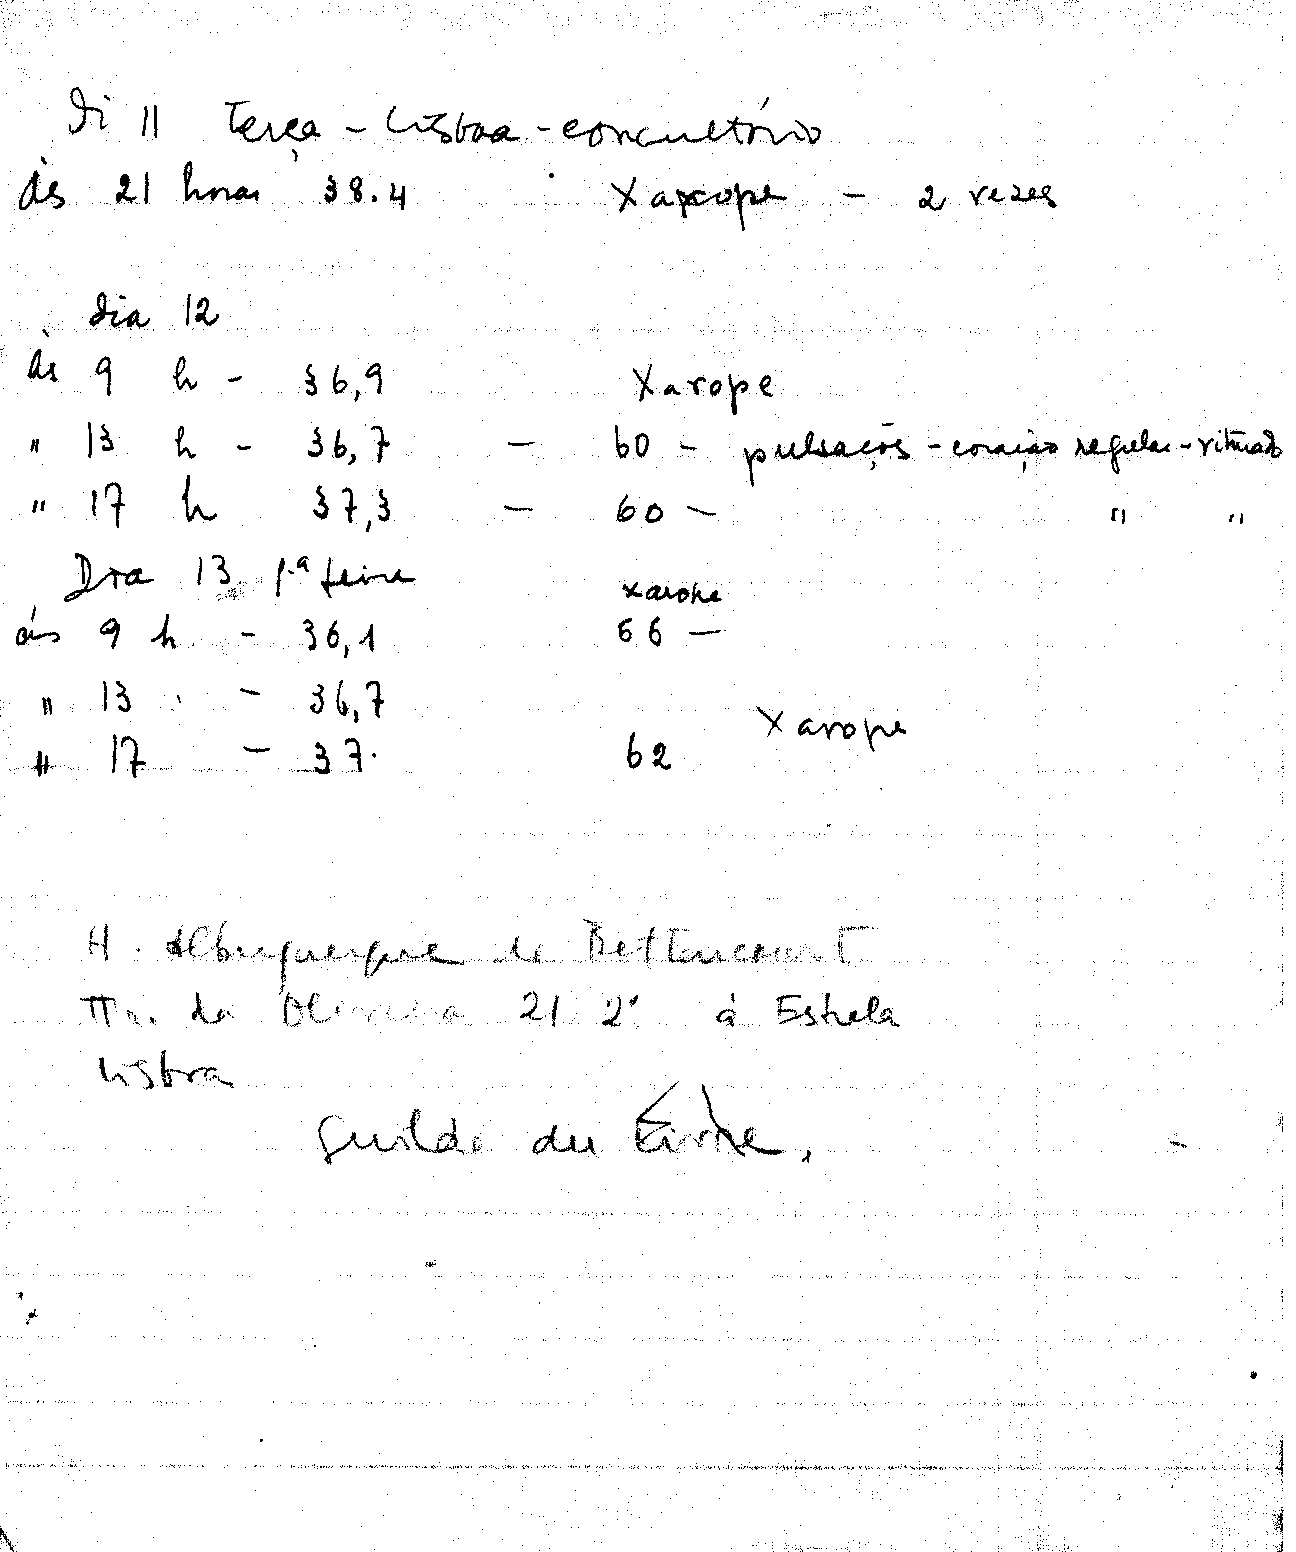 Di 11 Terça - Lisboa - concultório
às 21 horas 38.4 Xarope - 2 vezes
dia 12
às 9 h - 36,9 Xarope
" 13 h - 36,7 - 60 - pulsaçõs - coração regular - ritmado
" 17 h 37,3 - 60 - " "
Dia 13 5.ª feira xarope
às 9 h - 36,1 66 -
" 13 - 36,7
Xarope
" 17 - 37. 62
H. Albuquerque de Bettencourt
Tr. da Oliveira 21 2º à Estrela
Lisboa
Guilde du Livre,